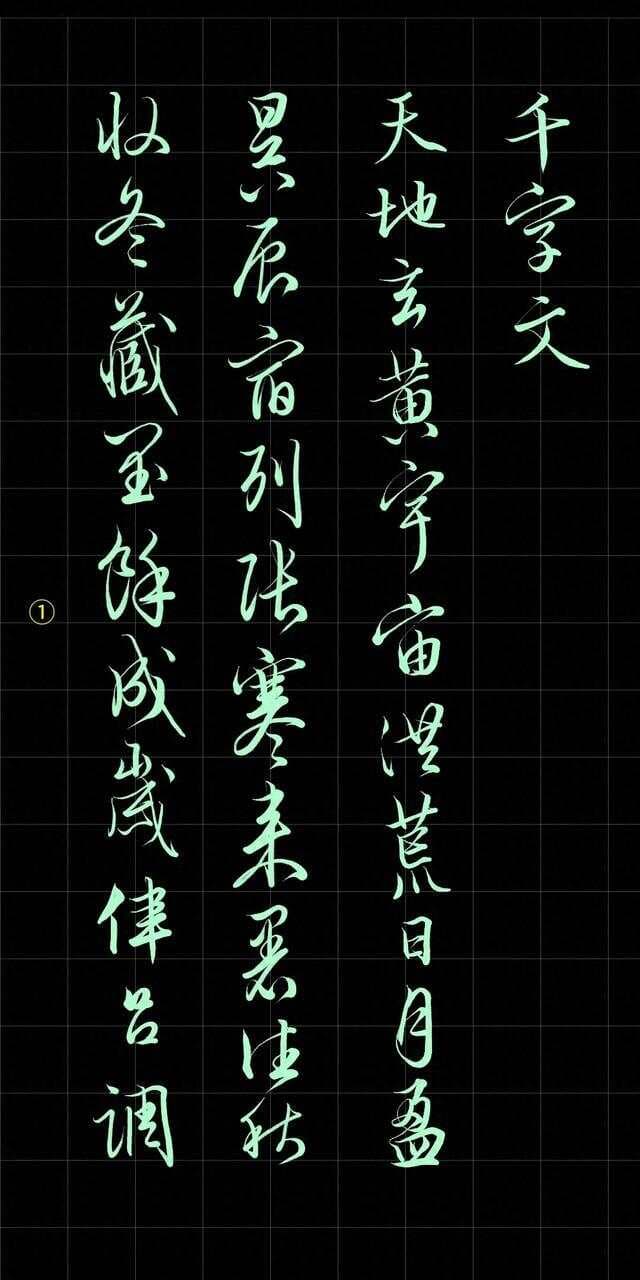 千字文
天地玄黄宇宙洪荒日月盈
昃辰宿列张寒来暑往秋
收冬藏闰餘成歲律吕调
①